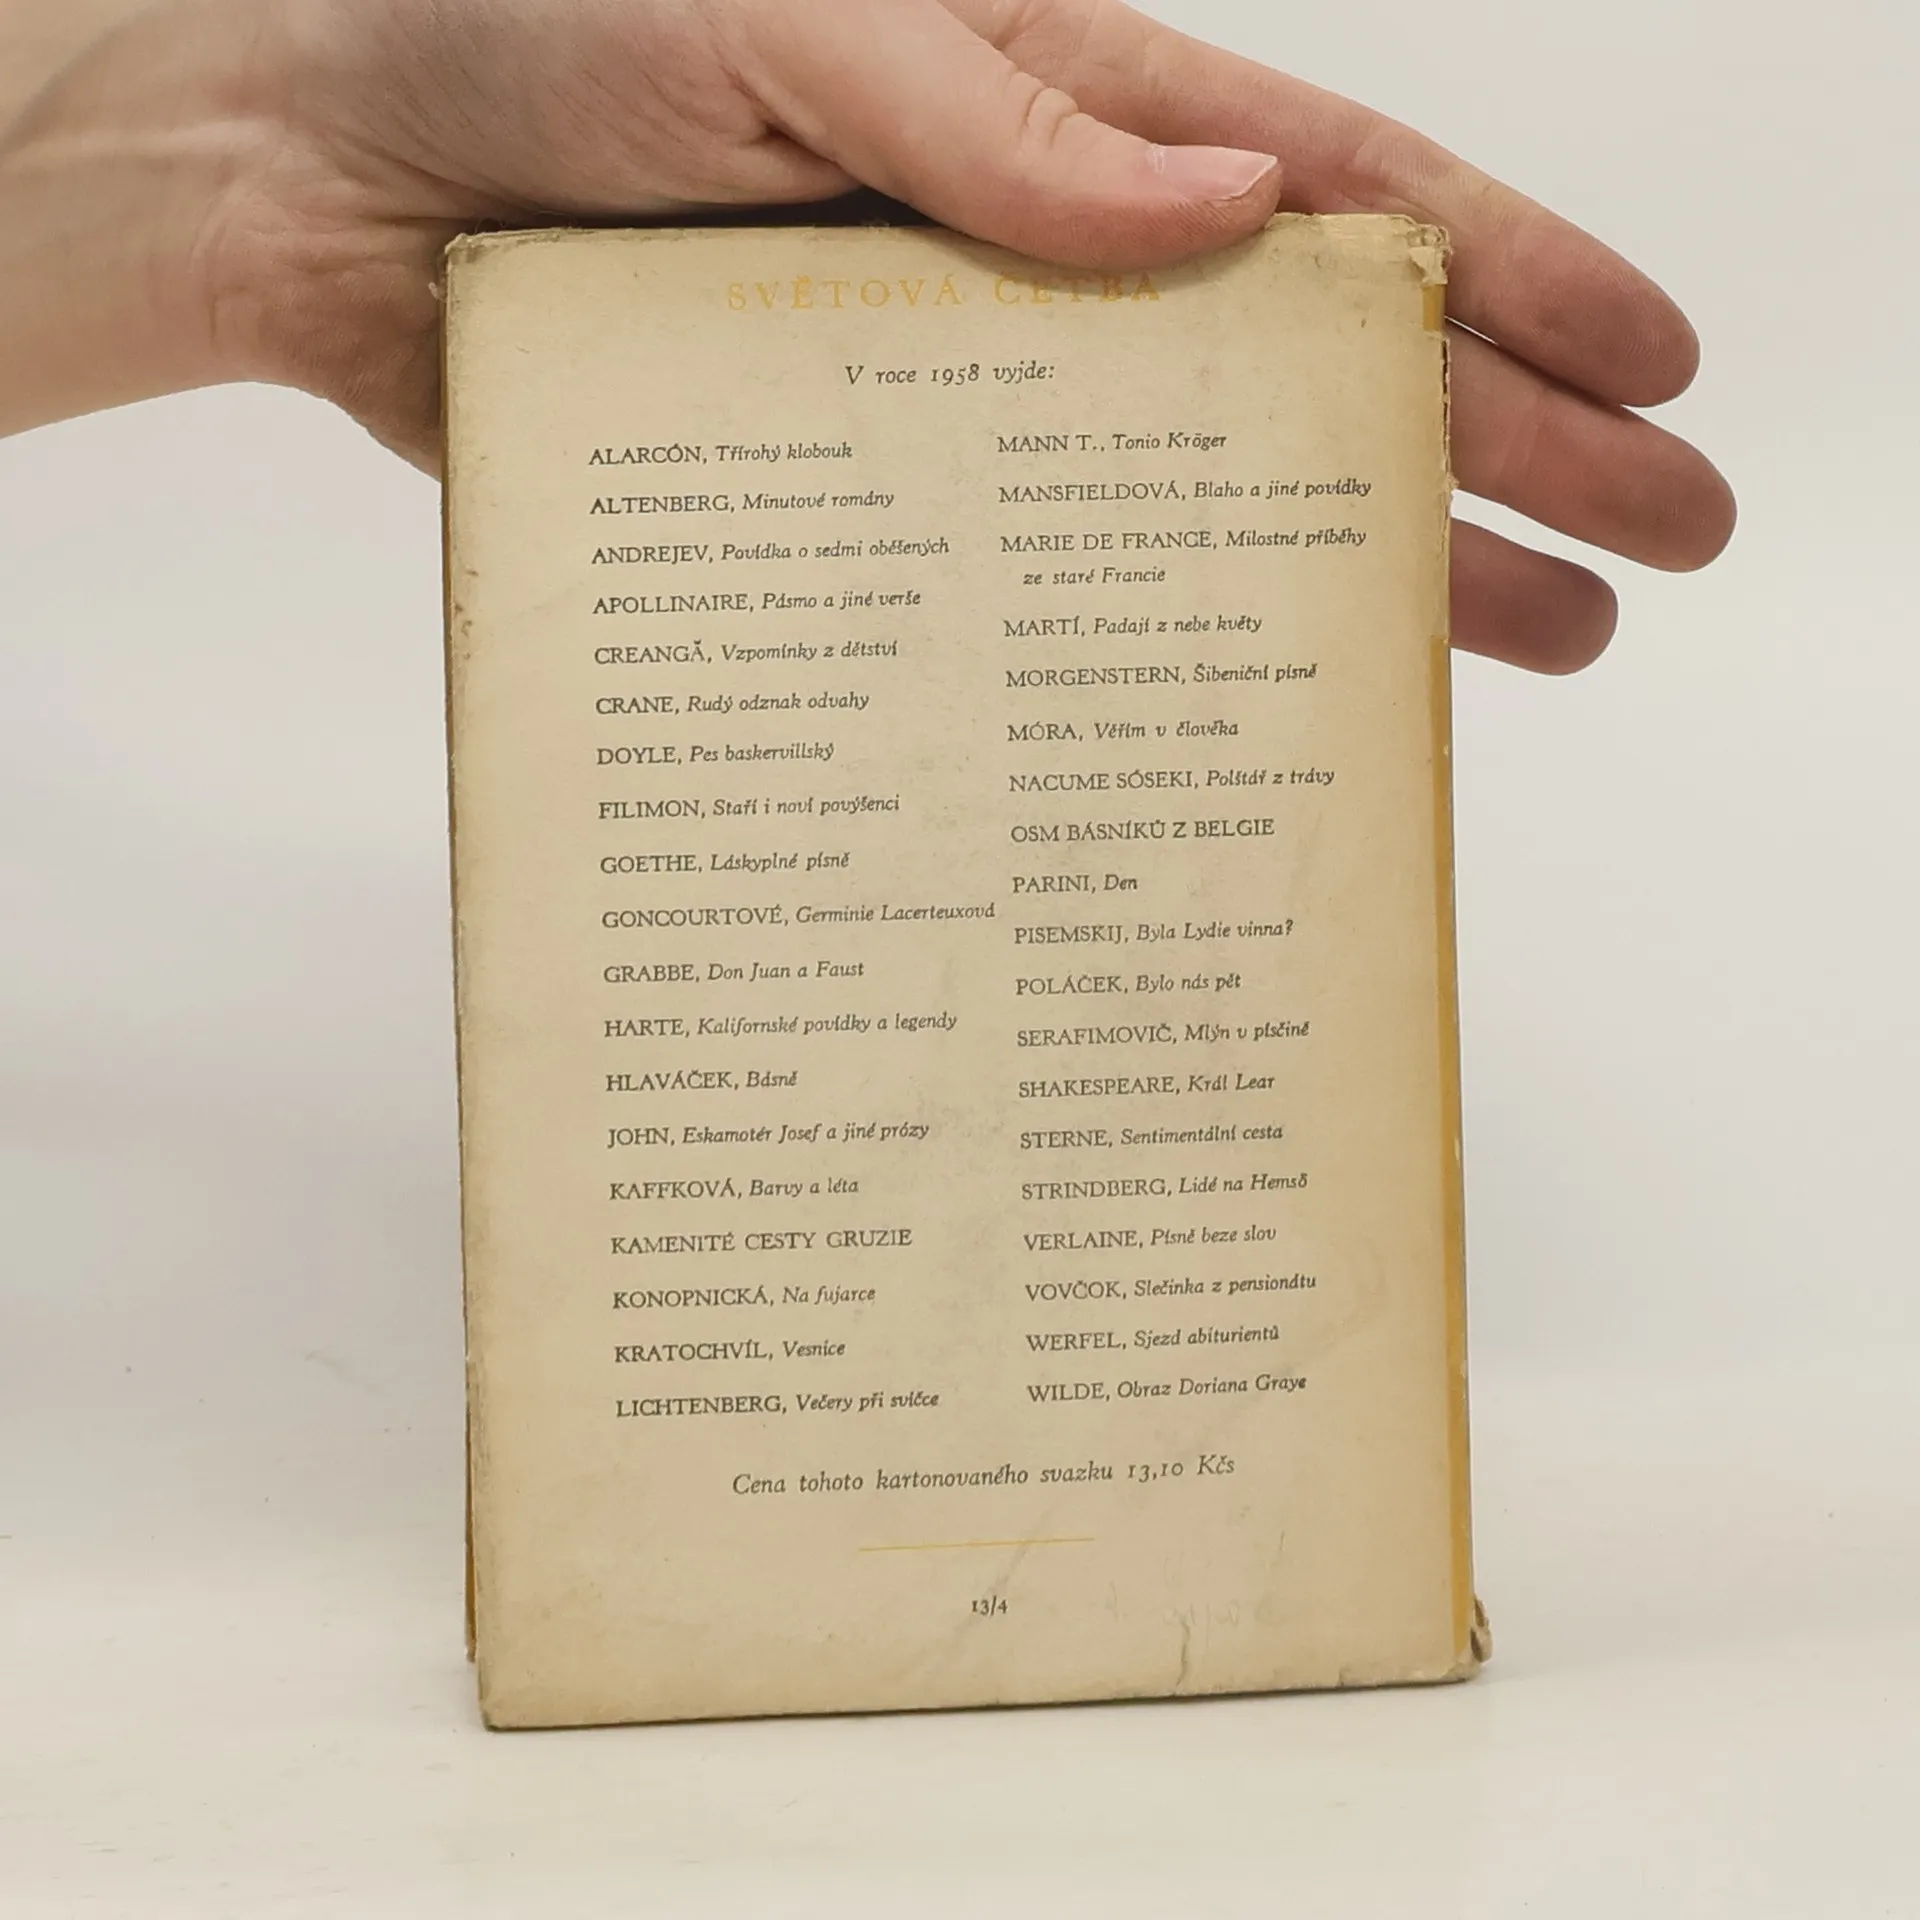 SVĚTOVÁ ČETBA
V roce 1958 vyjde:
ALARCÓN, Třírohý klobouk
ALTENBERG, Minutové romány
ANDREJEV, Povídka o sedmi oběšených
APOLLINAIRE, Pásmo a jiné verše
CREANGĂ, Vzpomínky z dětství
CRANE, Rudý odznak odvahy
DOYLE, Pes baskervillský
FILIMON, Staří i noví povýšenci
GOETHE, Láskyplné písně
GONCOURTOVÉ, Germinie Lacerteuxová
GRABBE, Don Juan a Faust
HARTE, Kalifornské povídky a legendy
HLAVÁČEK, Básně
JOHN, Eskamotér Josef a jiné prózy
KAFFKOVÁ, Barvy a léta
KAMENITÉ CESTY GRUZIE
KONOPNICKÁ, Na fujarce
KRATOCHVÍL, Vesnice
LICHTENBERG, Večery při svíčce
MANN T., Tonio Kröger
MANSFIELDOVÁ, Blaho a jiné povídky
MARIE DE FRANCE, Milostné příběhy
ze staré Francie
MARTÍ, Padají z nebe květy
MORGENSTERN, Šibeniční písně
MÓRA, Věřím v člověka
NACUME SÓSEKI, Polštář z trávy
OSM BÁSNÍKŮ Z BELGIE
PARINI, Den
PISEMSKIJ, Byla Lydie vinna?
POLÁČEK, Bylo nás pět
SERAFIMOVIČ, Mlýn v písčině
SHAKESPEARE, Král Lear
STERNE, Sentimentální cesta
STRINDBERG, Lidé na Hemsö
VERLAINE, Písně beze slov
VOVČOK, Slečinka z pensionátu
WERFEL, Sjezd abiturientů
WILDE, Obraz Doriana Graye
Cena tohoto kartonovaného svazku 13,10 Kčs
13/4